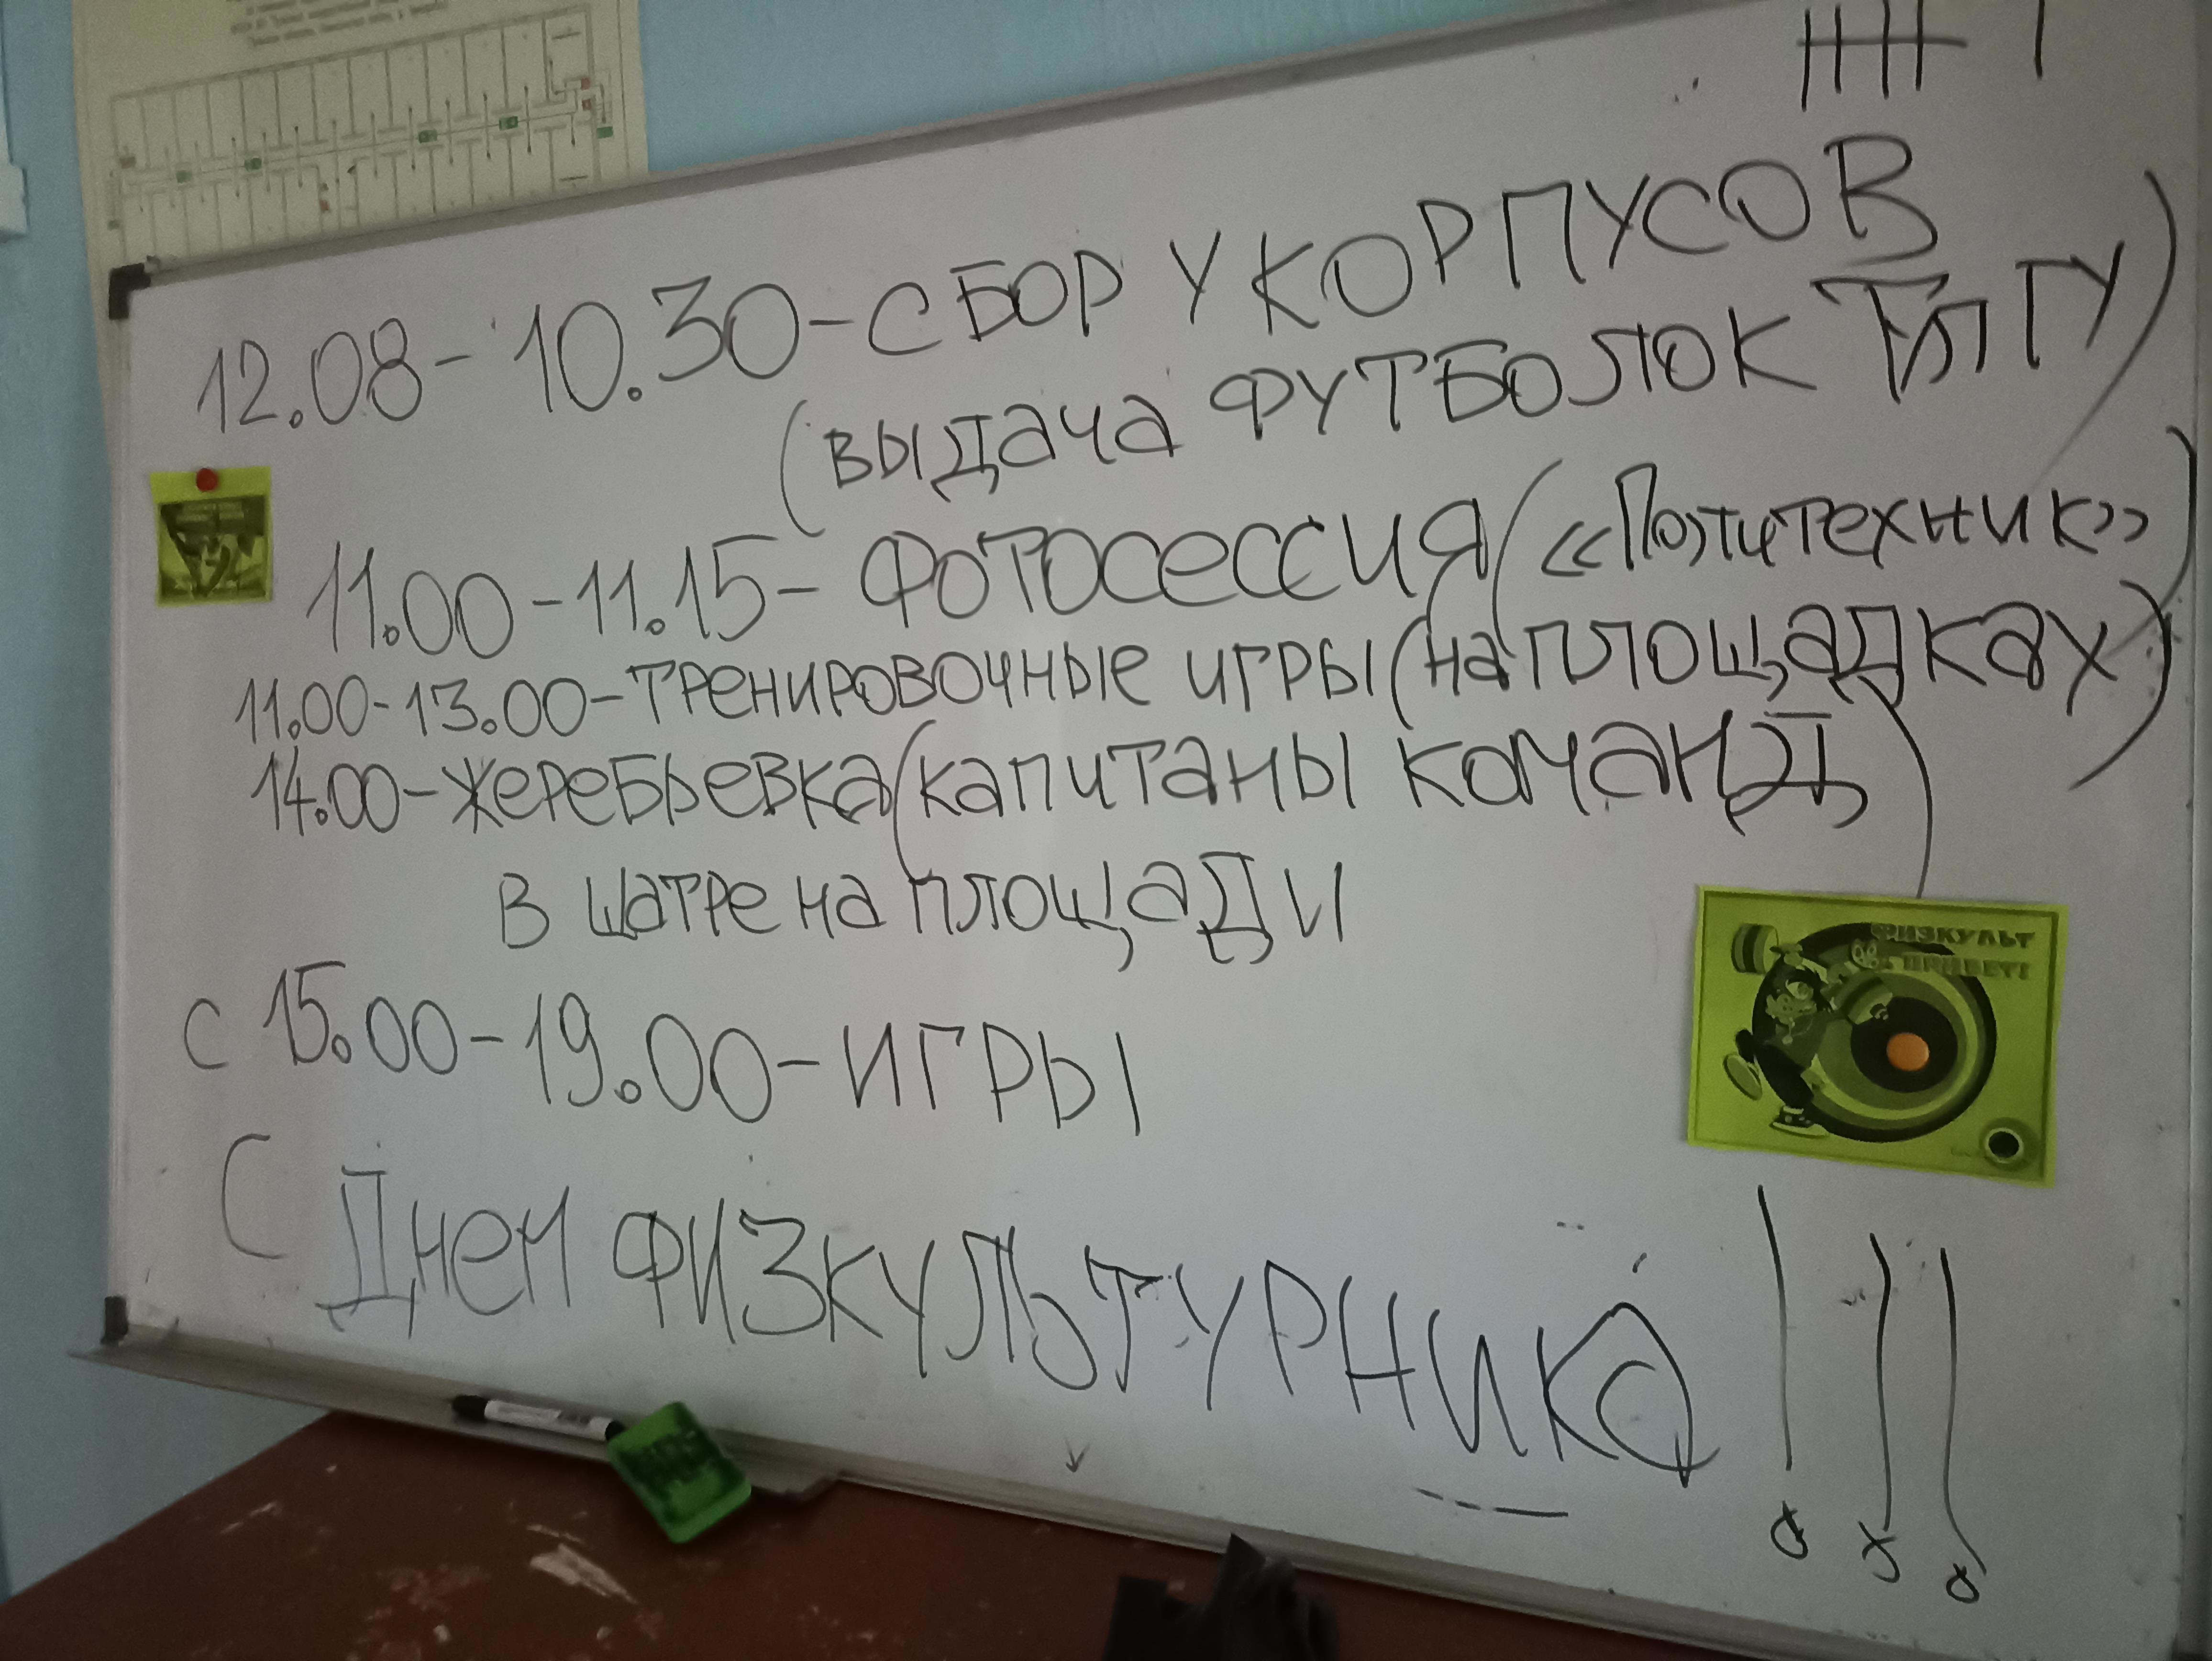 12.08- 10.30-СБОР У КОРПУСОВ
(выдача ФУТБОЛОК
11.00-11.15- ФОТОСЕССИЯ («Политехник»)
11.00-13.00-ТРЕНИРОВОЧНЫЕ ИГРЫ (на площадках)
14.00-Жеребьевка (капитаны команд)
в шатре на площади
с 15.00-19.00-ИГРЫ
ФИЗКУЛЬТ
ПРИВЕТ!
С Днем ФИЗКУЛЬТУРНИКА!!!